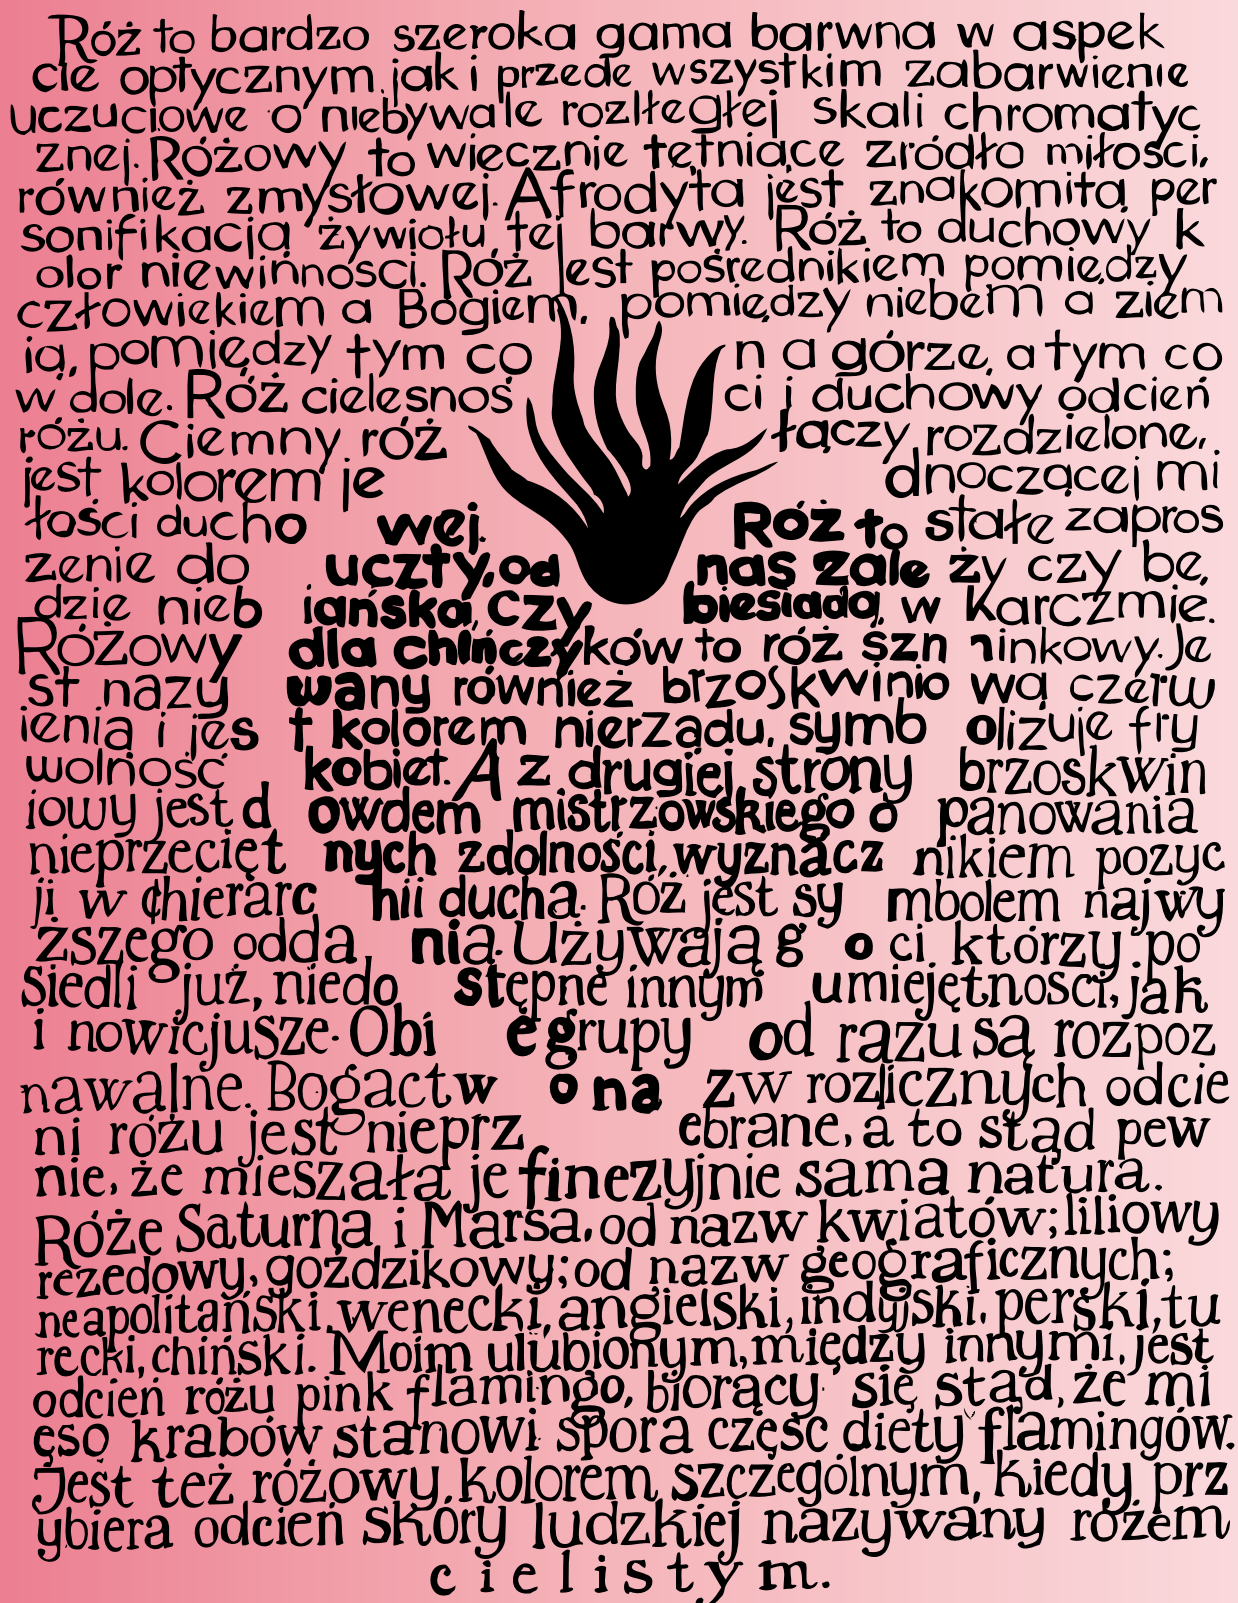 Róż to bardzo szeroka gama barwna w aspek
cie optycznym jak i przede wszystkim zabarwienie
uczuciowe o niebywale rozległej skali chromatyc
znej. Różowy to wiecznie tętniące źródło miłości,
również zmysłowej. Afrodyta jest znakomitą per
sonifikacją żywiołu tej barwy. Róż to duchowy k
olor niewinności. Róż jest pośrednikiem pomiędzy
człowiekiem a Bogiem, pomiędzy niebem a ziem
ią, pomiędzy tym co n a górze, a tym co
w dole. Róż cielesnoś ci i duchowy odcień
różu. Ciemny róż łączy rozdzielone,
jest kolorem je dnoczącej mi
łości ducho wej. Róż to stałe zapros
zenie do uczty, od nas zale ży czy bę,
dzie nieb iańska, czy biesiadą, w karczmie.
Różowy dla chińczyków to róż szn ninkowy. Je
st nazy wany również brzoskwinio wą czerw
ienią i jes t kolorem nierządu, symb olizuje fry
wolność kobiet. A z drugiej strony brzoskwin
iowy jest d owdem mistrzowskiego o panowania
nieprzecięt nych zdolności, wyznacz nikiem pozyc
ji w chierarc hii ducha. Róż jest sy mbolem najwy
ższego odda nia. Używają g o ci którzy po
siedli już, niedo stępne innym umiejętności, jak
i nowicjusze. Obi e grupy od razu są rozpoz
nawalne. Bogactw o na zw rozlicznych odcie
ni różu jest nieprz ebrane, a to stąd pew
nie, że mieszała je finezyjnie sama natura.
Róże Saturna i Marsa, od nazw kwiatów; liliowy
rezedowy, goździkowy; od nazw geograficznych;
neapolitański, wenecki, angielski, indyjski, perski, tu
recki, chiński. Moim ulubionym, między innymi, jest
odcień różu pink flamingo, biorący się stąd, że mi
ęso krabów stanowi sporą część diety flamingów.
Jest też różowy, kolorem szczególnym, kiedy prz
ybiera odcień skóry ludzkiej nazywany różem
cielistym.